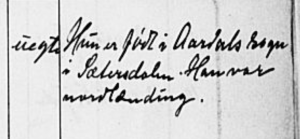 uegte Hun er født i Aardals sogn
i Sætersdalen. Han var
nordlænding.